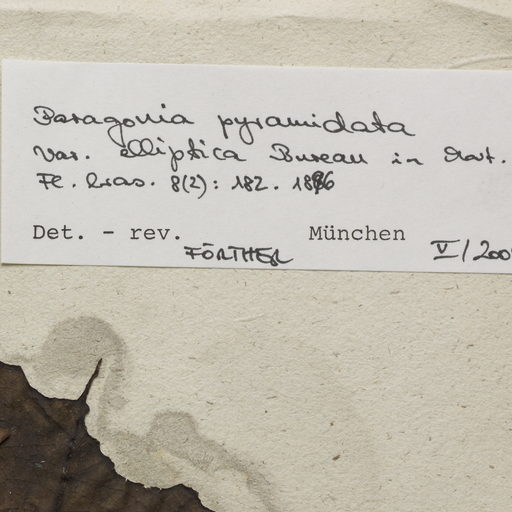 Paragonia pyramidata
var. elliptica Bureau in Mart.
Fl. bras. 8(2): 182. 1896
Det. - rev. München
FÖRTHER V/200